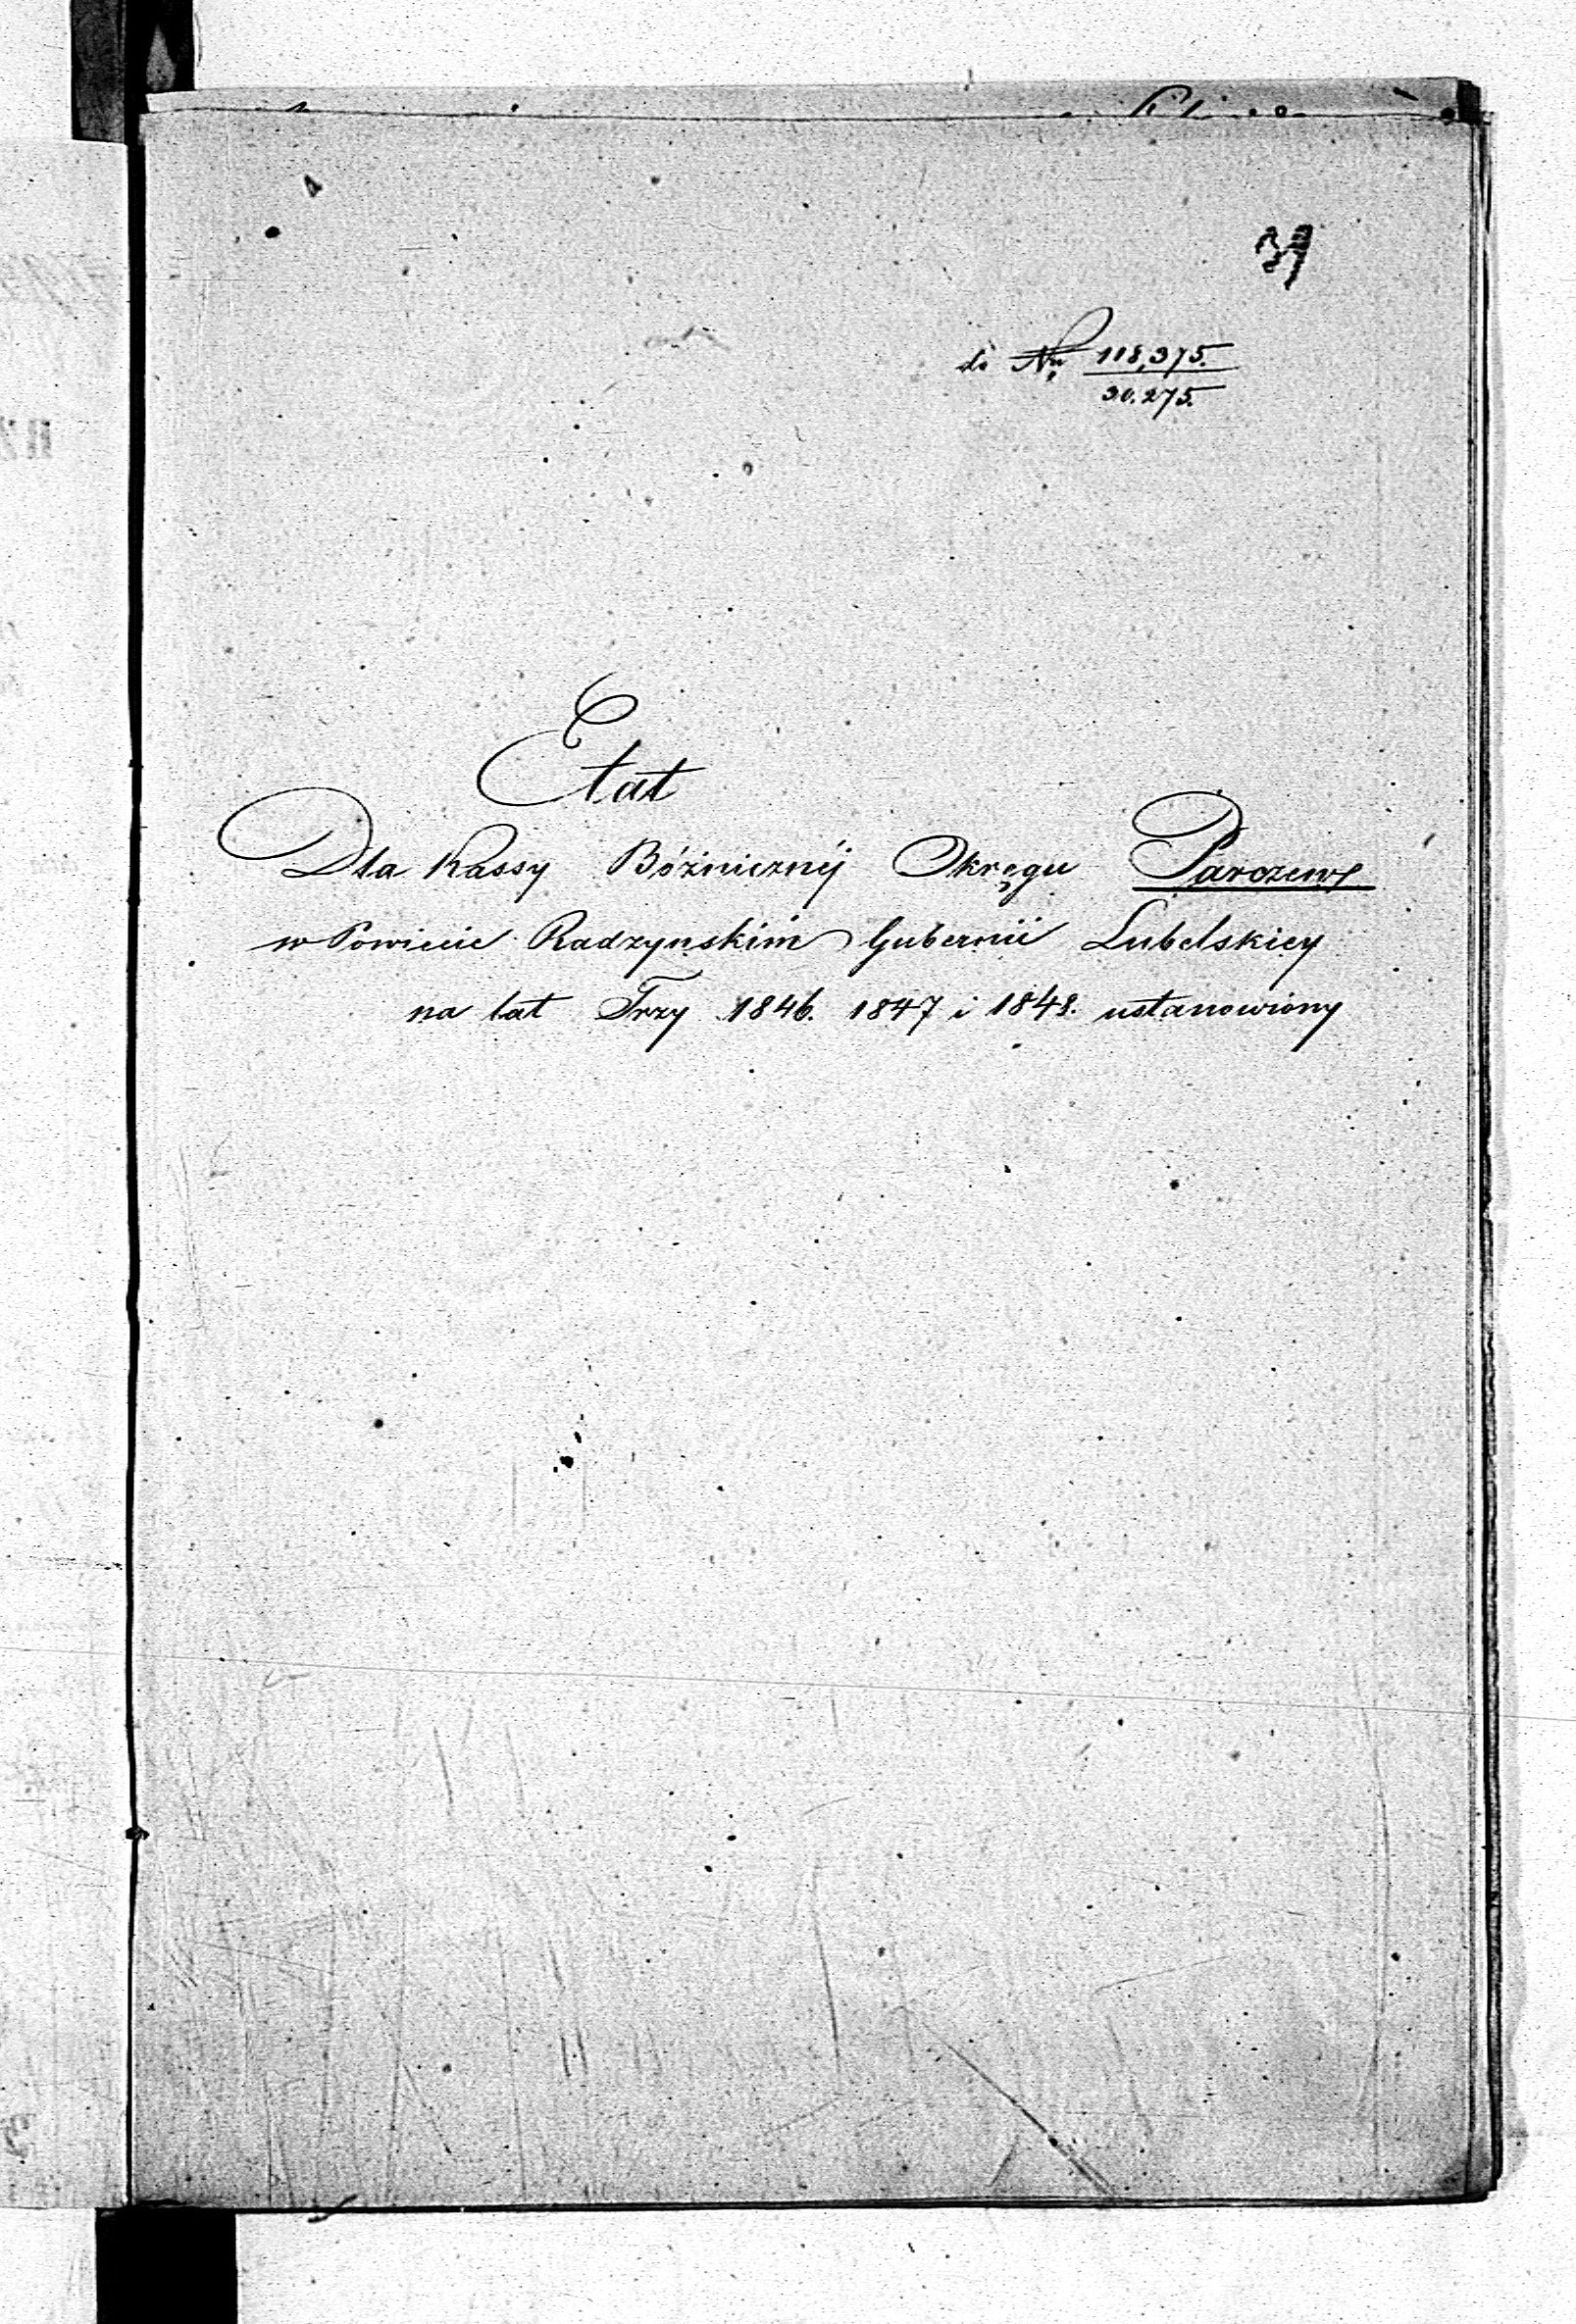 39
do Nru 118,375.
30.275.
Etat
Dla Kassy Bóżnicznéj Okręgu Parczew
w Powiecie Radzynskim Gubernii Lubelskiey
na lat Trzy 1846. 1847 i 1848. ustanowiony